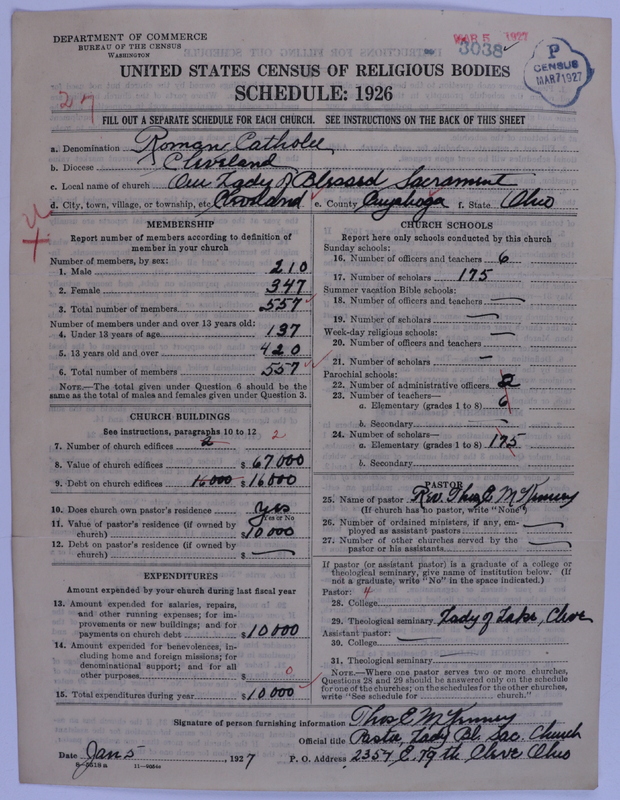 DEPARTMENT OF COMMERCE
BUREAU OF THE CENSUS
WASHINGTON
MAR 5 1927
3038
P
CENSUS
MAR 7 1927
UNITED STATES CENSUS OF RELIGIOUS BODIES
SCHEDULE: 1926
27
FILL OUT A SEPARATE SCHEDULE FOR EACH CHURCH. SEE INSTRUCTIONS ON THE BACK OF THIS SHEET
a. Denomination Roman Catholic
b. Diocese Cleveland
c. Local name of church Our Lady of Blessed Sacrament
d. City, town, village, or township, etc. Cleveland e. County Cuyahoga f. State Ohio
MEMBERSHIP
Report number of members according to definition of
member in your church
Number of members, by sex:
1. Male 210
2. Female 347
3. Total number of members 557
Number of members under and over 13 years old:
4. Under 13 years of age 137
5. 13 years old and over 420
6. Total number of members 557
NOTE.—The total given under Question 6 should be the
same as the total of males and females given under Question 3.
CHURCH BUILDINGS
See instructions, paragraphs 10 to 12
7. Number of church edifices 2 2
8. Value of church edifices $67000
9. Debt on church edifices 16000 $16000
10. Does church own pastor's residence? yes
Yes or No
11. Value of pastor's residence (if owned by
church) $10000
12. Debt on pastor's residence (if owned by
church) $ —
EXPENDITURES
Amount expended by your church during last fiscal year
13. Amount expended for salaries, repairs,
and other running expenses; for im-
provements or new buildings; and for
payments on church debt $10000
14. Amount expended for benevolences, in-
cluding home and foreign missions; for
denominational support; and for all
other purposes $ 0
15. Total expenditures during year $10000
CHURCH SCHOOLS
Report here only schools conducted by this church
Sunday schools:
16. Number of officers and teachers 6
17. Number of scholars 175
Summer vacation Bible schools:
18. Number of officers and teachers —
19. Number of scholars —
Week-day religious schools:
20. Number of officers and teachers —
21. Number of scholars —
Parochial schools:
22. Number of administrative officers 2
23. Number of teachers—
a. Elementary (grades 1 to 8) 6
b. Secondary —
24. Number of scholars—
a. Elementary (grades 1 to 8) 175
b. Secondary
PASTOR
25. Name of pastor Rev. Thos E McKinney
(If church has no pastor, write "None")
26. Number of ordained ministers, if any, em-
ployed as assistant pastors —
27. Number of other churches served by the
pastor or his assistants —
If pastor (or assistant pastor) is a graduate of a college or
theological seminary, give name of institution below. (If
not a graduate, write "No" in the space indicated.)
Pastor: 4
28. College
29. Theological seminary Lady of Lake, Cleve
Assistant pastor:
30. College —
31. Theological seminary
NOTE.—Where one pastor serves two or more churches,
Questions 28 and 29 should be answered only on the schedule
for one of the churches; on the schedules for the other churches,
write "See schedule for church."
Signature of person furnishing information Thos E McKinney
Official title Pastor, Lady Bl. Sac. Church
Date Jan 5, 1927 P. O. Address 2357 E. 79th Cleve Ohio
8—5218 a 11—9056